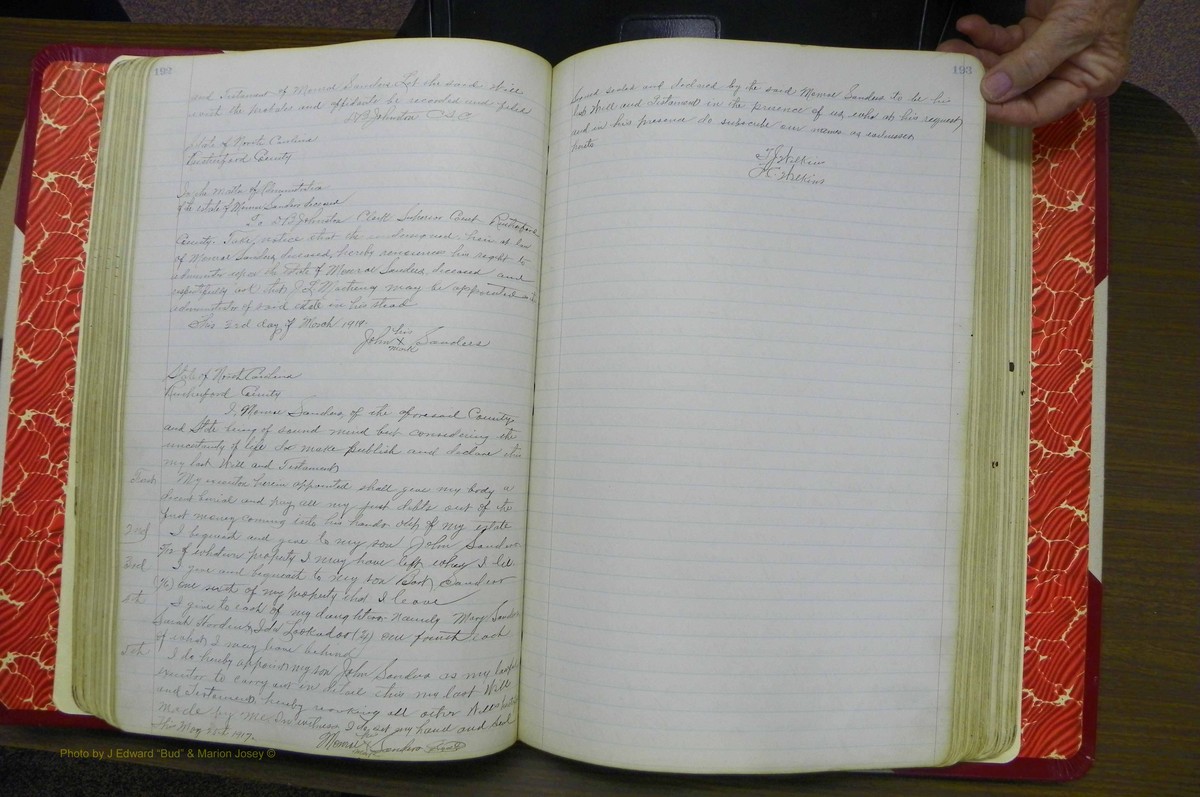 192
and Testament of Monroe Sanders. Let the said Will
with the probates and affidavits be recorded and filed
Johnston C.S.C.
State of North Carolina
Rutherford County
In the matter of Administration
of the estate of Monroe Sanders deceased
To Johnston Clerk Superior Court Rutherford
County. Take notice that the undersigned heir at law
of Monroe Sanders, deceased, hereby renounces his right to
administer upon the Estate of Monroe Sanders, deceased and
respectfully ask that may be appointed as
administrator of said estate in his stead
This 3rd day of March 1919.
John his X mark Sanders
State of North Carolina
Rutherford County
I, Monroe Sanders, of the aforesaid County
and State being of sound mind but considering the
uncertainty of life do make publish and declare this
my last Will and Testament
My executor herein appointed shall give my body a
decent burial and pay all my just debts out of the
first money coming into his hands of my estate
2nd I bequeath and give to my son John Sanders
of whatever property I may have left
3rd I give and bequeath to my son Sanders
one of my property that I leave
I give to each of my daughters namely Mary Sanders
Sarah Ida (¼) one fourth each
of what I may leave behind
5th I do hereby appoint my son John Sanders as my lawful
executor to carry out in detail this my last Will
and Testament, hereby revoking all other Wills
made by me. In witness I do set my hand and seal
This May 1917.
Monroe X Sanders (Seal)
193
Signed sealed and declared by the said Monroe Sanders to be his
last Will and Testament in the presence of us, who at his request
and in his presence do subscribe our names as witnesses
hereto.
Wilkins
Wilkins
Photo by J Edward "Bud" & Marion Josey ©